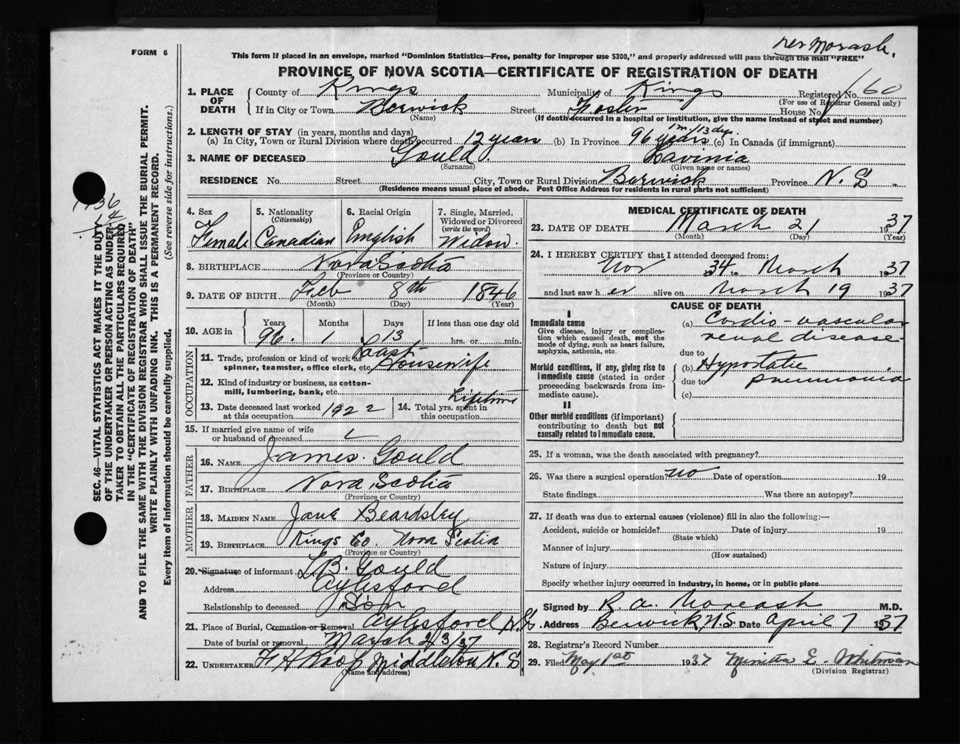 FORM 6
rer Morash.
This form if placed in an envelope, marked "Dominion Statistics—Free, penalty for improper use $300," and properly addressed will pass through the mail "FREE"
PROVINCE OF NOVA SCOTIA—CERTIFICATE OF REGISTRATION OF DEATH
1. PLACE OF DEATH County of Kings Municipality of Kings Registered No. 60
(For use of Registrar General only)
If in City or Town Berwick Street Foster House No.
(Name) (If death occurred in a hospital or institution, give the name instead of street and number)
2. LENGTH OF STAY (in years, months and days)
(a) In City, Town or Rural Division where death occurred 12 years (b) In Province 96 years 1m/13dys. (c) In Canada (if immigrant)
3. NAME OF DECEASED Gould Lavinia
(Surname) (Given name or names)
RESIDENCE No. Street City, Town or Rural Division Berwick Province N.S.
(Residence means usual place of abode. Post Office Address for residents in rural parts not sufficient)
4. Sex Female
5. Nationality (Citizenship) Canadian
6. Racial Origin English
7. Single, Married, Widowed or Divorced (write the word) Widow.
8. BIRTHPLACE Nova Scotia
(Province or Country)
9. DATE OF BIRTH Feb 8th 1846
(Month) (Day) (Year)
10. AGE in Years 96. Months 1 Days 13 If less than one day old hrs. or min.
OCCUPATION
11. Trade, profession or kind of work as spinner, teamster, office clerk, etc. Past Housewife
12. Kind of industry or business, as cotton-mill, lumbering, bank, etc.
13. Date deceased last worked at this occupation 1922
14. Total yrs. spent in this occupation Lifetime
15. If married give name of wife or husband of deceased
FATHER
16. NAME James Gould
17. BIRTHPLACE Nova Scotia
(Province or Country)
MOTHER
18. MAIDEN NAME Jane Beardsley
19. BIRTHPLACE Kings Co. Nova Scotia
(Province or Country)
20. Signature of informant L.B. Gould
Address Aylesford
Relationship to deceased Son
21. Place of Burial, Cremation or Removal Aylesford N.S.
Date of burial or removal March 23/37
22. UNDERTAKER F H Roop Middleton N.S
(Name and address)
MEDICAL CERTIFICATE OF DEATH
23. DATE OF DEATH March 21 1937
(Month) (Day) (Year)
24. I HEREBY CERTIFY that I attended deceased from:
Nov 34 to March 1937
and last saw her alive on March 19 1937
CAUSE OF DEATH
I
Immediate cause
Give disease, injury or complication which caused death, not the mode of dying, such as heart failure, asphyxia, asthenia, etc.
Morbid conditions, if any, giving rise to immediate cause (stated in order proceeding backwards from immediate cause).
II
Other morbid conditions (if important) contributing to death but not causally related to immediate cause.
(a) Cordis-vascular
renal disease
due to
(b) Hypostatic
due to pneumonia
(c)
25. If a woman, was the death associated with pregnancy?
26. Was there a surgical operation? no Date of operation 19
State findings Was there an autopsy?
27. If death was due to external causes (violence) fill in also the following:—
Accident, suicide or homicide? Date of injury 19
(State which)
Manner of injury
(How sustained)
Nature of injury
Specify whether injury occurred in Industry, in home, or in public place
Signed by R. A. Moreash M.D.
Address Berwick N.S. Date April 7 1937
28. Registrar's Record Number
29. Filed May 1st 1937 E. Whitman
(Division Registrar)
1936
14
SEC. 46—VITAL STATISTICS ACT MAKES IT THE DUTY
OF THE UNDERTAKER OR PERSON ACTING AS UNDER-
TAKER TO OBTAIN ALL THE PARTICULARS REQUIRED
IN THE "CERTIFICATE OF REGISTRATION OF DEATH"
AND TO FILE THE SAME WITH THE DIVISION REGISTRAR WHO SHALL ISSUE THE BURIAL PERMIT.
WRITE PLAINLY WITH UNFADING INK. THIS IS A PERMANENT RECORD.
Every item of information should be carefully supplied. (See reverse side for instructions.)